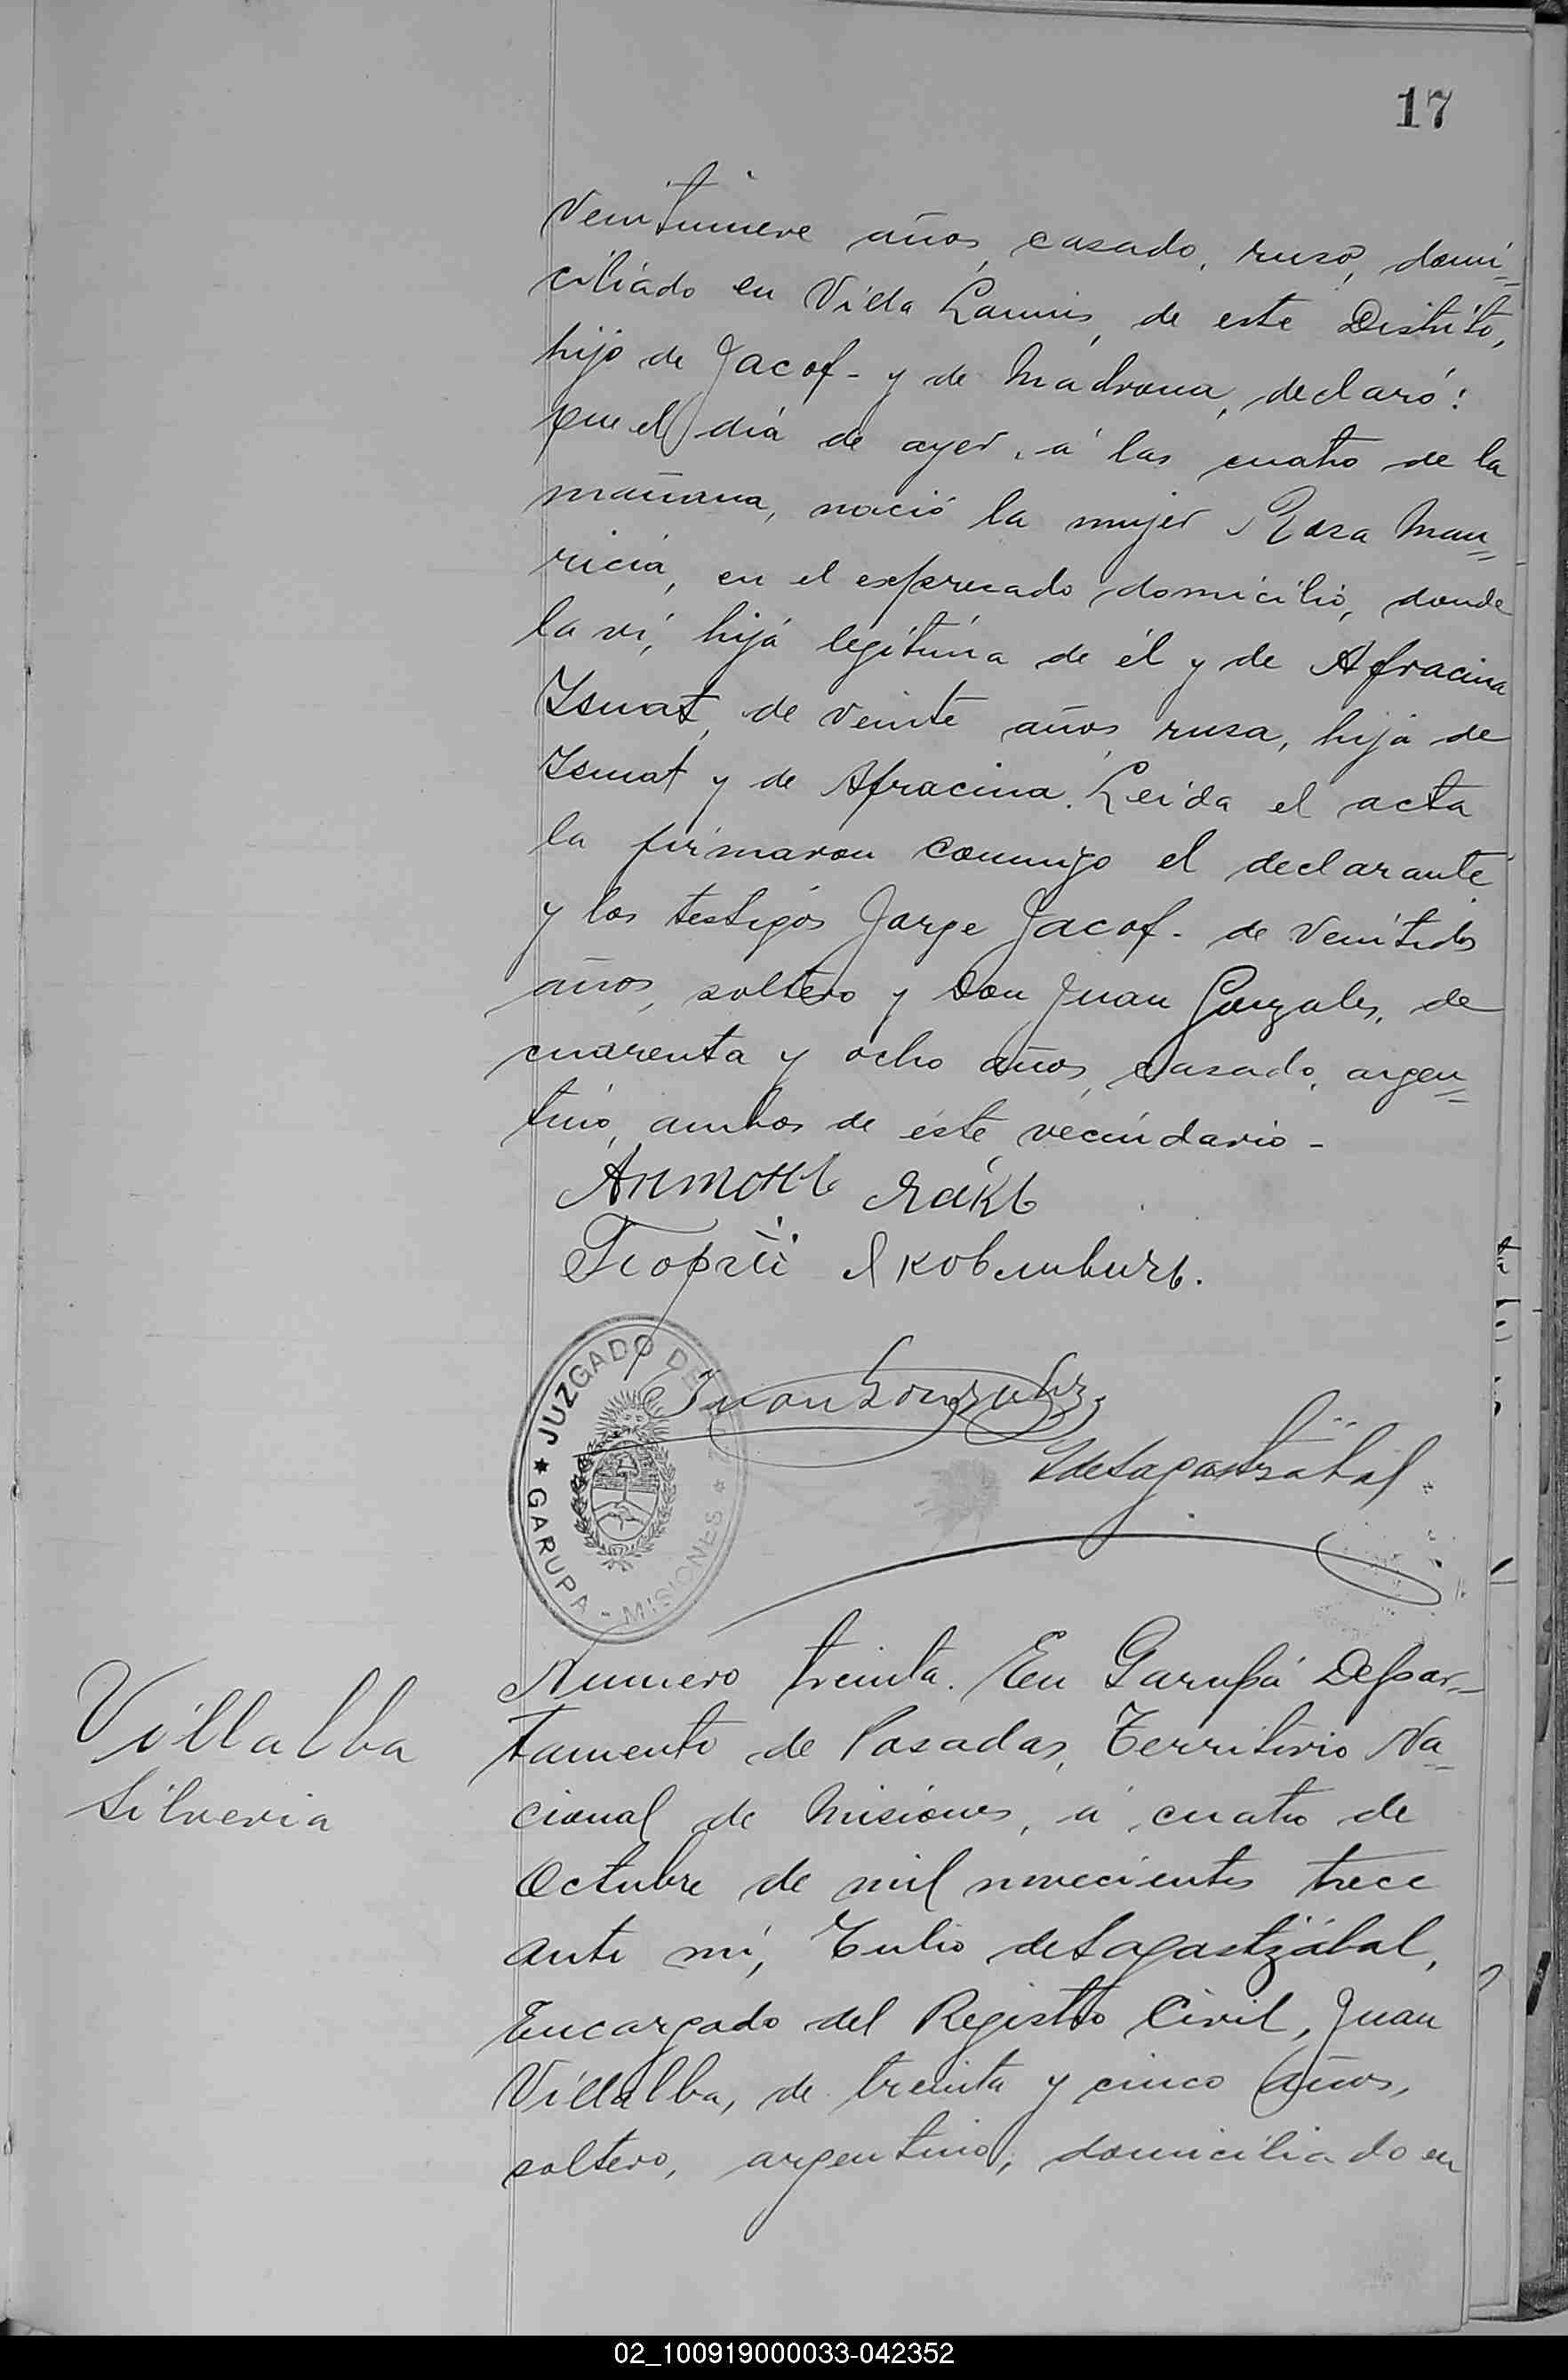 17
Ventinueve años, casado, ruso, domi=
ciliado en Villa Lanús, de este Distrito,
hijo de Jacof - y de Madrona, declaró:
que el dia de ayer, á las cuatro de la
mañana, nació la mujer Rosa Mau=
ricia, en el expresado domicilio, donde
la ví, hija legítima de él y de Afracina
Ismat, de veinte años, rusa, hija de
Ismat y de Afracina. Leida el acta
la firmaron conmigo el declarante
y los testigos Jorge Jacof - de Veintidos
años, soltero y Don Juan Gonzales, de
cuarenta y ocho años, casado, argen=
tino, ambos de éste vecindario -
Антонъ
Георгій
JUZGADO DE
Juan Gonzalez
TdeSagastzabal
★ GARUPA - MISIONES ★
Villalba
Silveria
Numero treinta. En Garupá Depar=
tamento de Posadas, Territorio Na=
cional de Misiones, á cuatro de
Octubre de mil novecientos trece
ante mí, Tulio de Sagastzábal,
Encargado del Registro Civil, Juan
Villalba, de treinta y cinco años,
soltero, argentino, domiciliado en
02_100919000033-042352